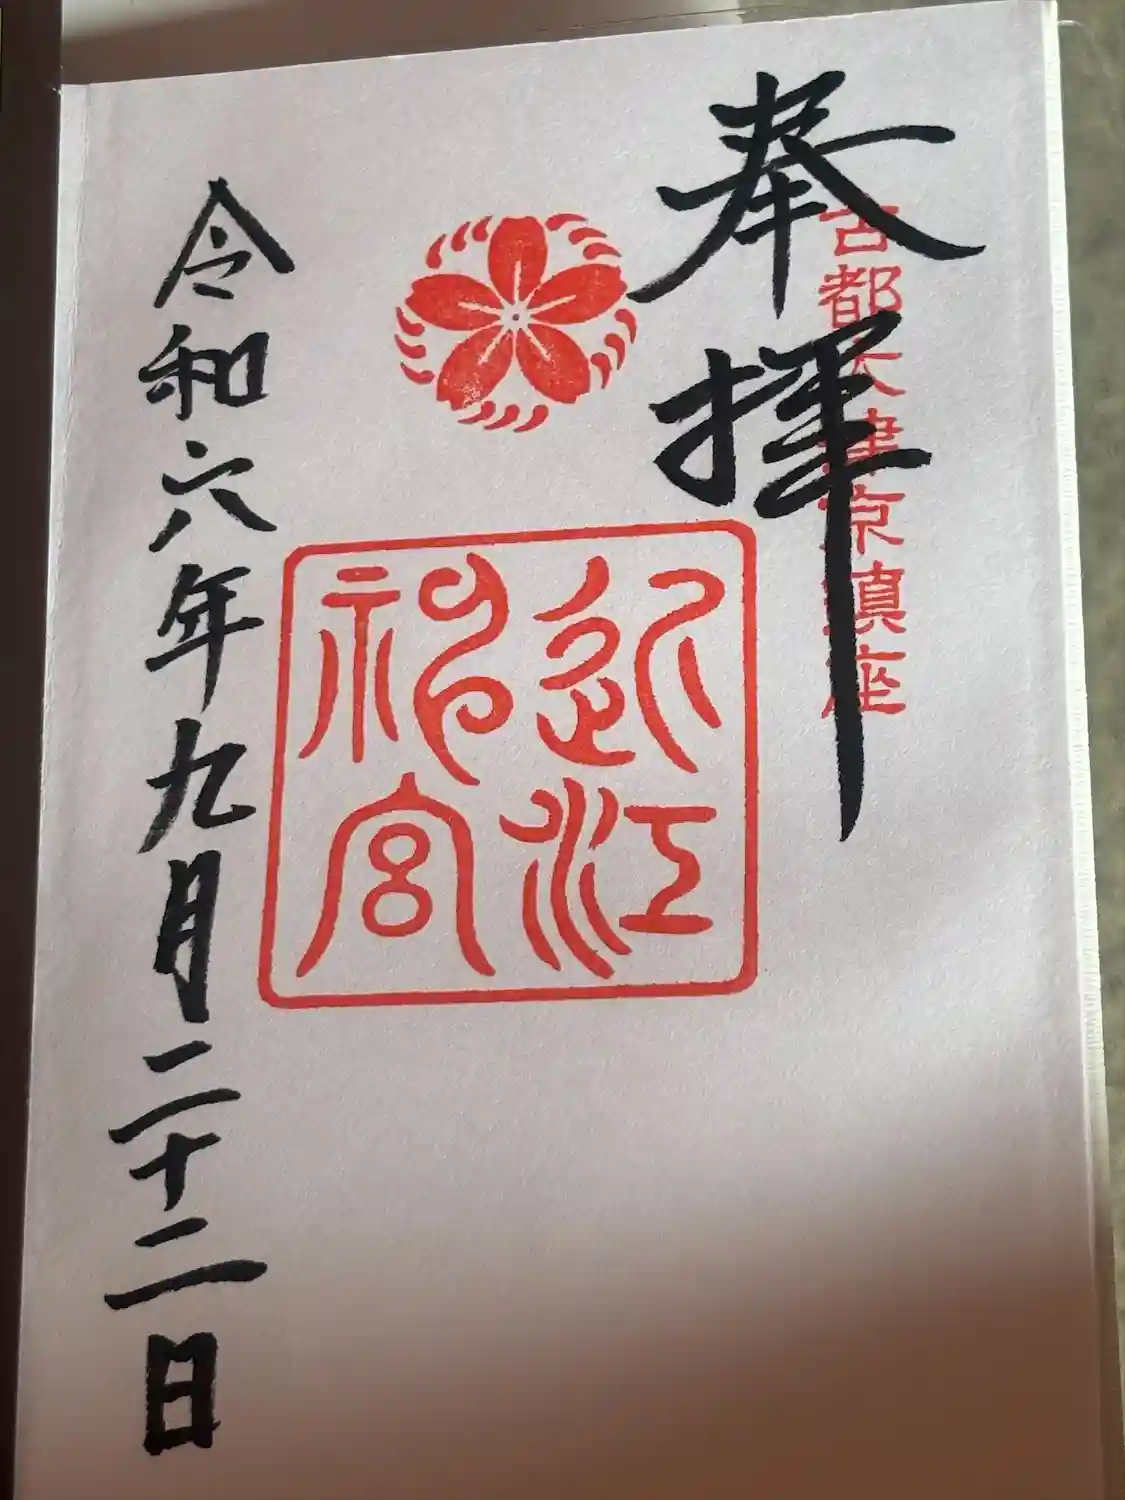 奉拝
古都大津京鎮座
近江
神宮
令和六年九月二十二日